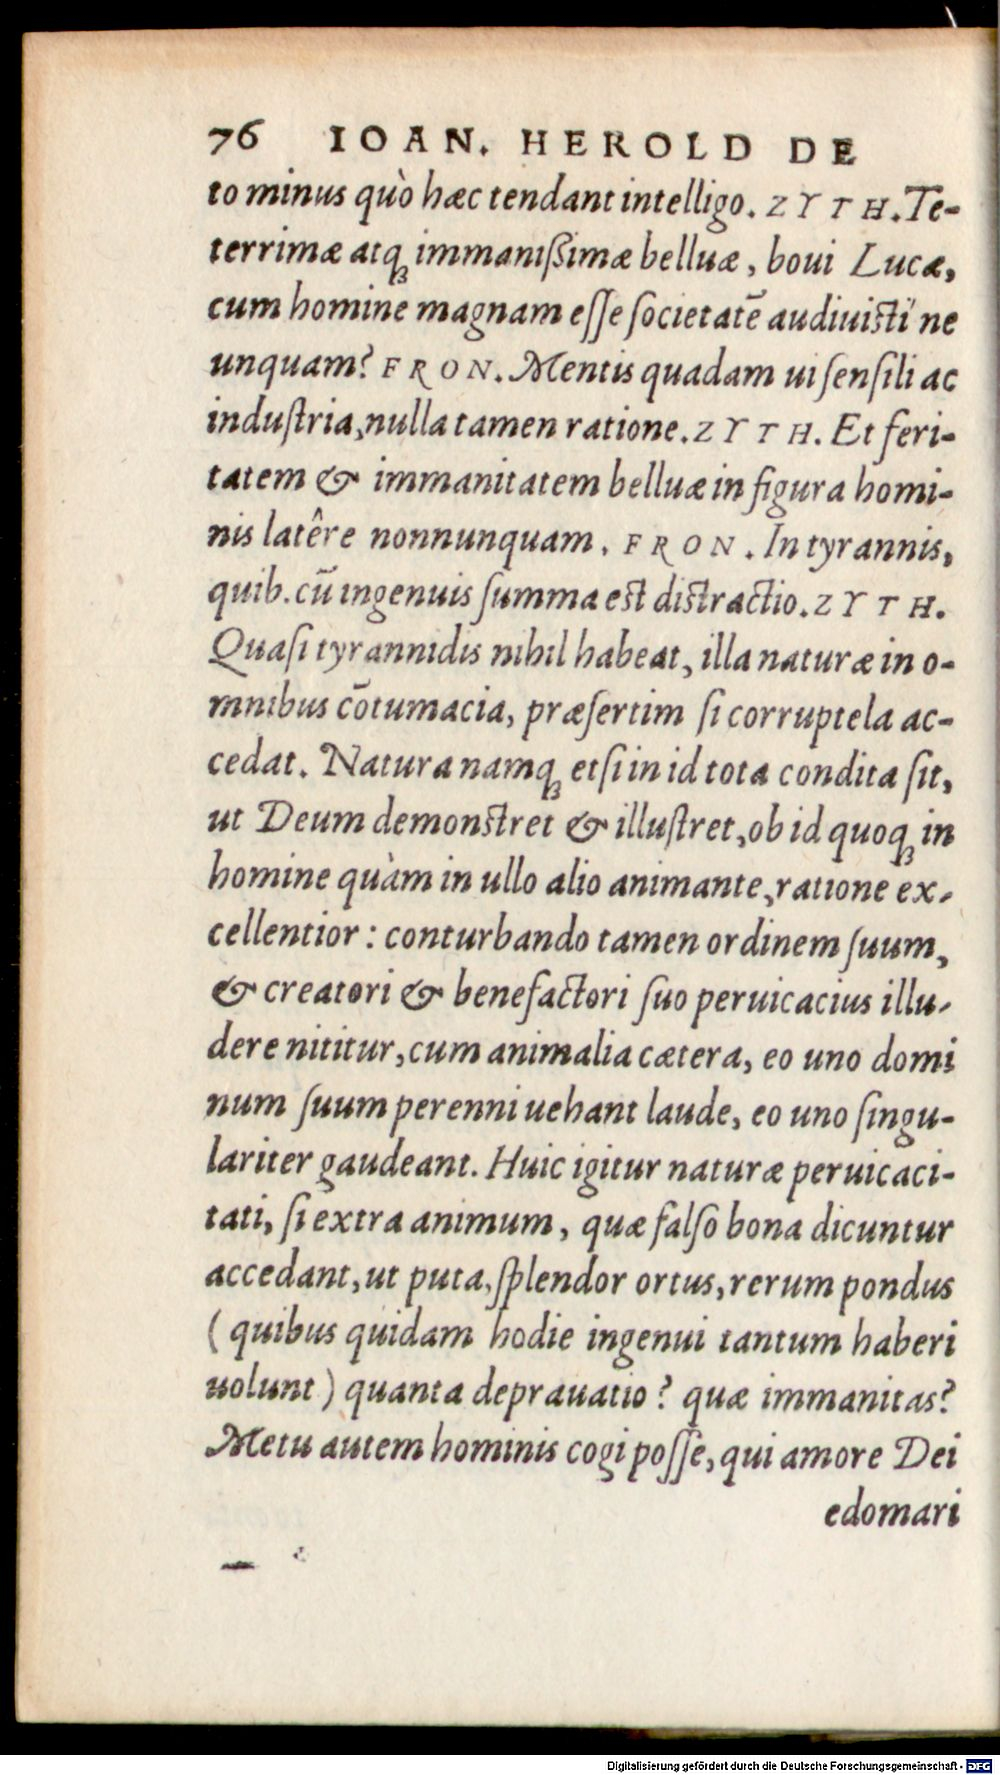 76 IOAN. HEROLD DE
to minus quò hæc tendant intelligo. ZYTH. Te-
terrimæ atq; immanißimæ belluæ, boui Lucæ,
cum homine magnam eſſe ſocietatē audiuisti' ne
unquam? FRON. Mentis quadam ui ſenſili ac
induſtria, nulla tamen ratione. ZYTH. Et feri-
tatem & immanitatem belluæ in figura homi-
nis latêre nonnunquam. FRON. In tyrannis,
quib. cū ingenuis ſumma est distractio. ZYTH.
Quaſi tyrannidis nihil habeat, illa naturæ in o-
mnibus cōtumacia, præſertim ſi corruptela ac-
cedat. Natura namq; etſi in id tota condita ſit,
ut Deum demonstret & illuſtret, ob id quoq; in
homine quàm in ullo alio animante, ratione ex-
cellentior: conturbando tamen ordinem ſuum,
& creatori & benefactori ſuo peruicacius illu-
dere nititur, cum animalia cætera, eo uno domi
num ſuum perenni uehant laude, eo uno ſingu-
lariter gaudeant. Huic igitur naturæ peruicaci-
tati, ſi extra animum, quæ falſo bona dicuntur
accedant, ut puta, ſplendor ortus, rerum pondus
(quibus quidam hodie ingenui tantum haberi
uolunt) quanta deprauatio? quæ immanitas?
Metu autem hominis cogi poſſe, qui amore Dei
edomari
Digitalisierung gefördert durch die Deutsche Forschungsgemeinschaft - DFG